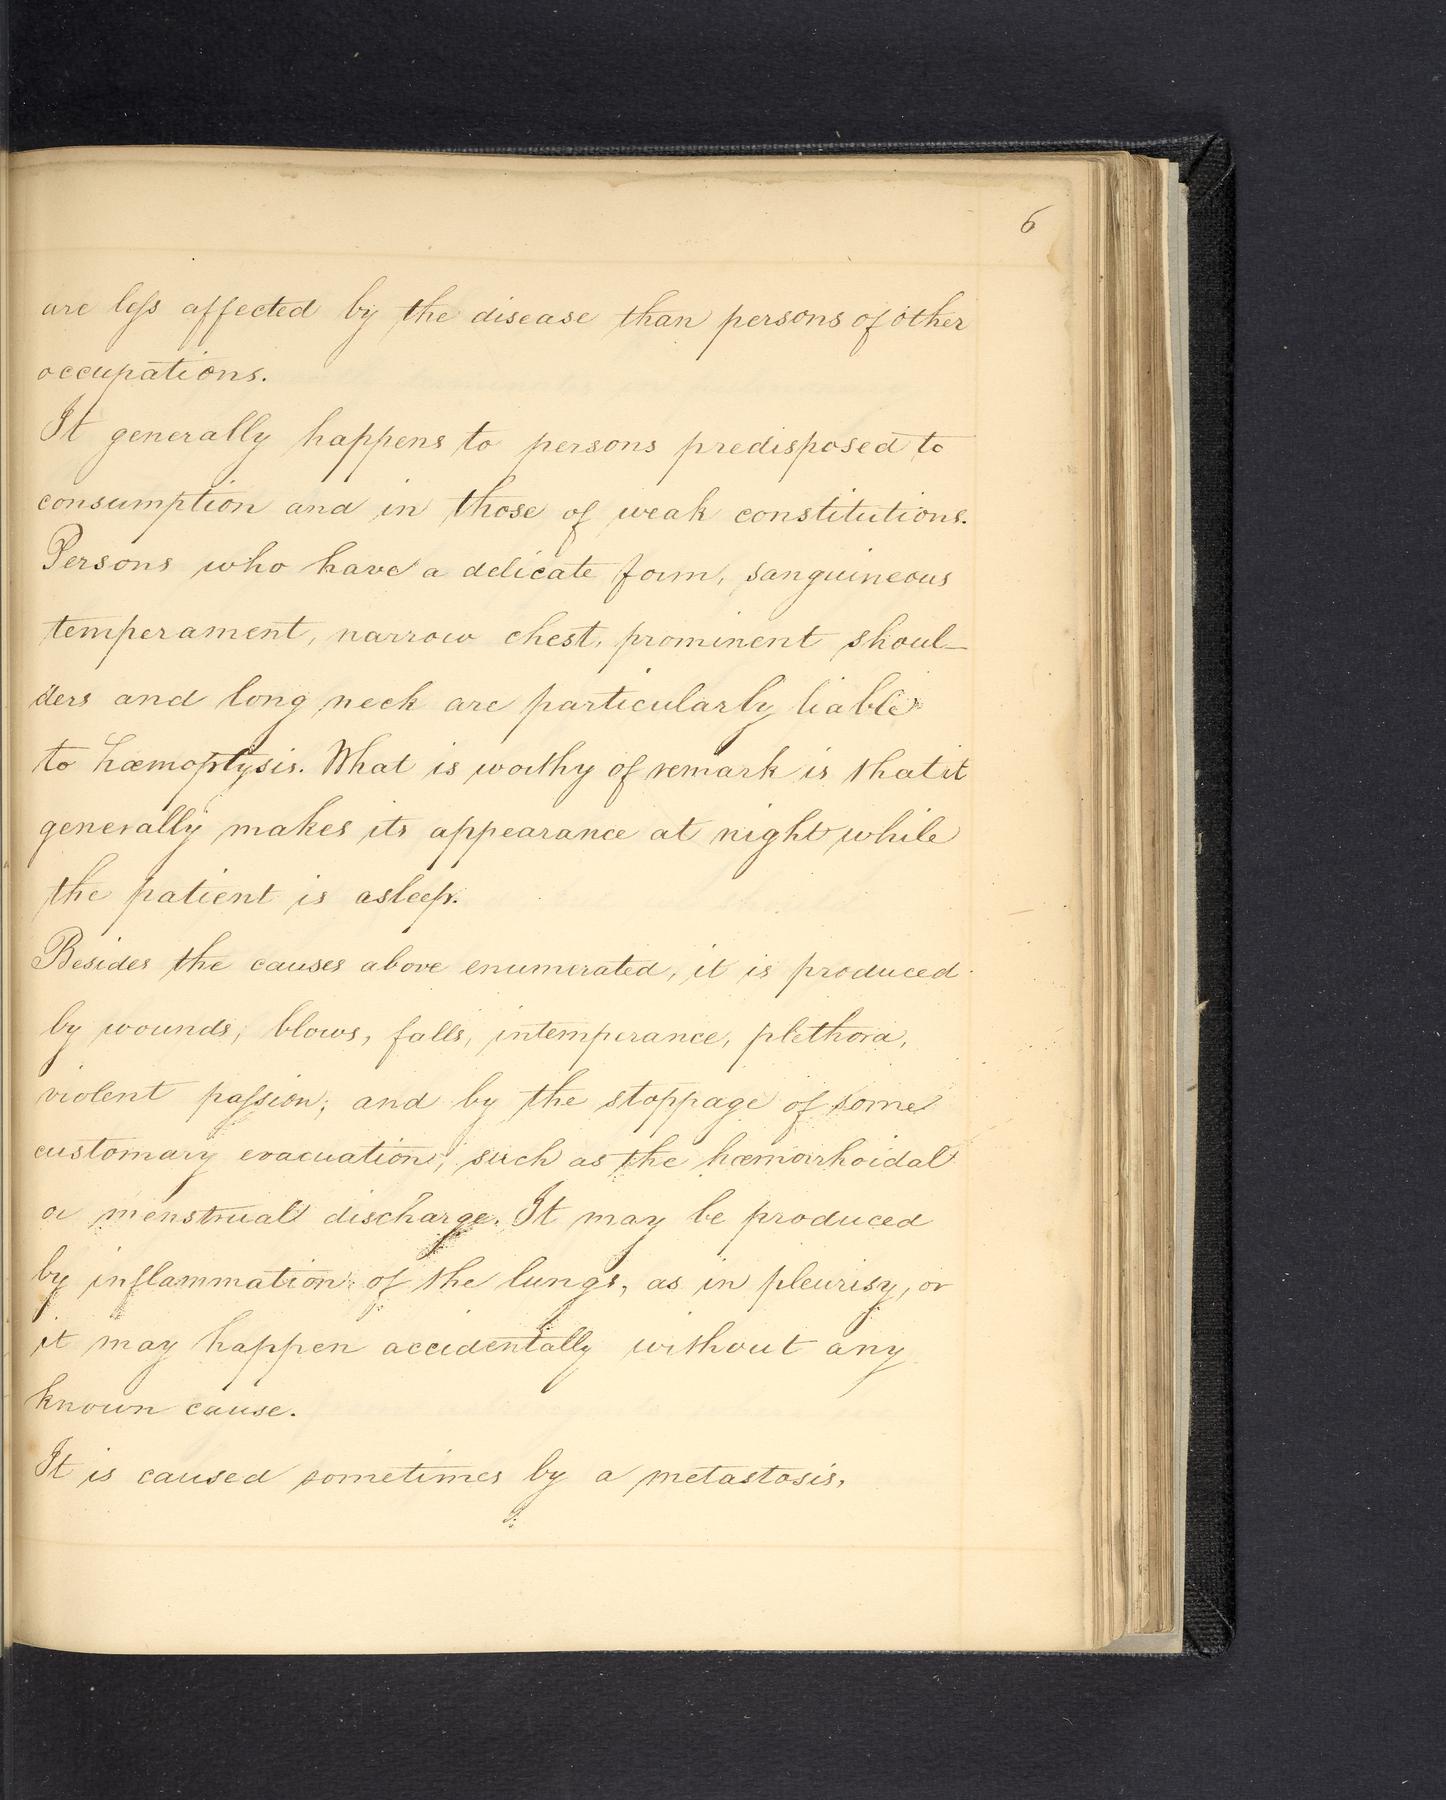 6
are less affected by the disease than persons of other
occupations.
It generally happens to persons predisposed to
consumption and in those of weak constitutions.
Persons who have a delicate form, sanguineous
temperament, narrow chest, prominent shoul-
ders and long neck are particularly liable
to hæmoptysis. What is worthy of remark is that it
generally makes its appearance at night while
the patient is asleep.
Besides the causes above enumerated, it is produced
by wounds, blows, falls, intemperance, plethora,
violent passion; and by the stoppage of some
customary evacuation, such as the hæmorrhoidal
or menstrual discharge. It may be produced
by inflammation of the lungs, as in pleurisy, or
it may happen accidentally without any
known cause.
It is caused sometimes by a metastasis,